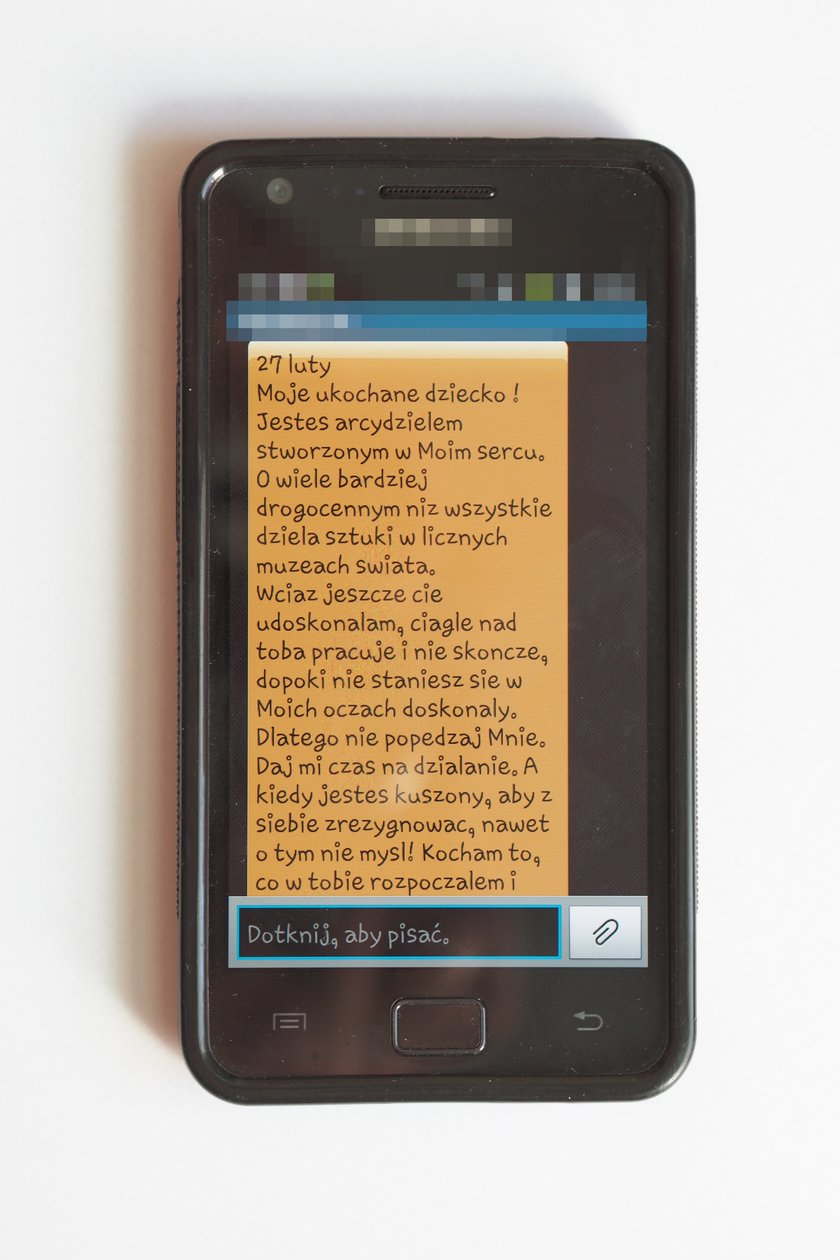 27 luty
Moje ukochane dziecko !
Jestes arcydzielem
stworzonym w Moim sercu.
O wiele bardziej
drogocennym niz wszystkie
dziela sztuki w licznych
muzeach swiata.
Wciaz jeszcze cie
udoskonalam, ciagle nad
toba pracuje i nie skoncze,
dopoki nie staniesz sie w
Moich oczach doskonaly.
Dlatego nie popedzaj Mnie.
Daj mi czas na dzialanie. A
kiedy jestes kuszony, aby z
siebie zrezygnowac, nawet
o tym nie mysl! Kocham to,
co w tobie rozpoczalem i
Dotknij, aby pisać.